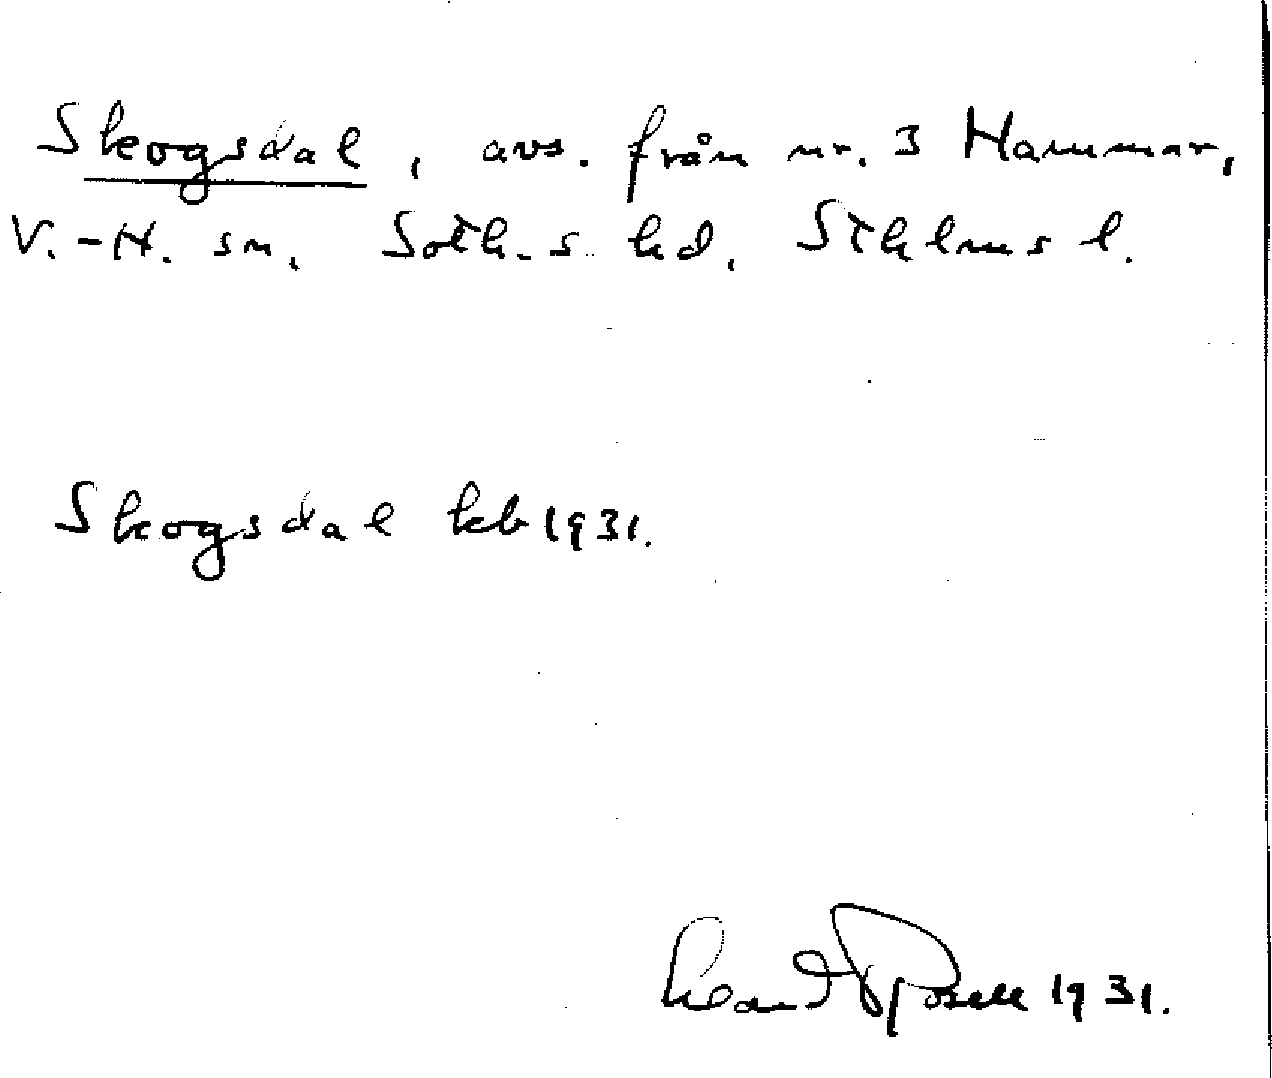 Skogsdal, avs. från nr. 3 Hammar,
V.-H. sn. Soth.s hd, Sthlms l.
Skogsdal kb 1931.
1931.